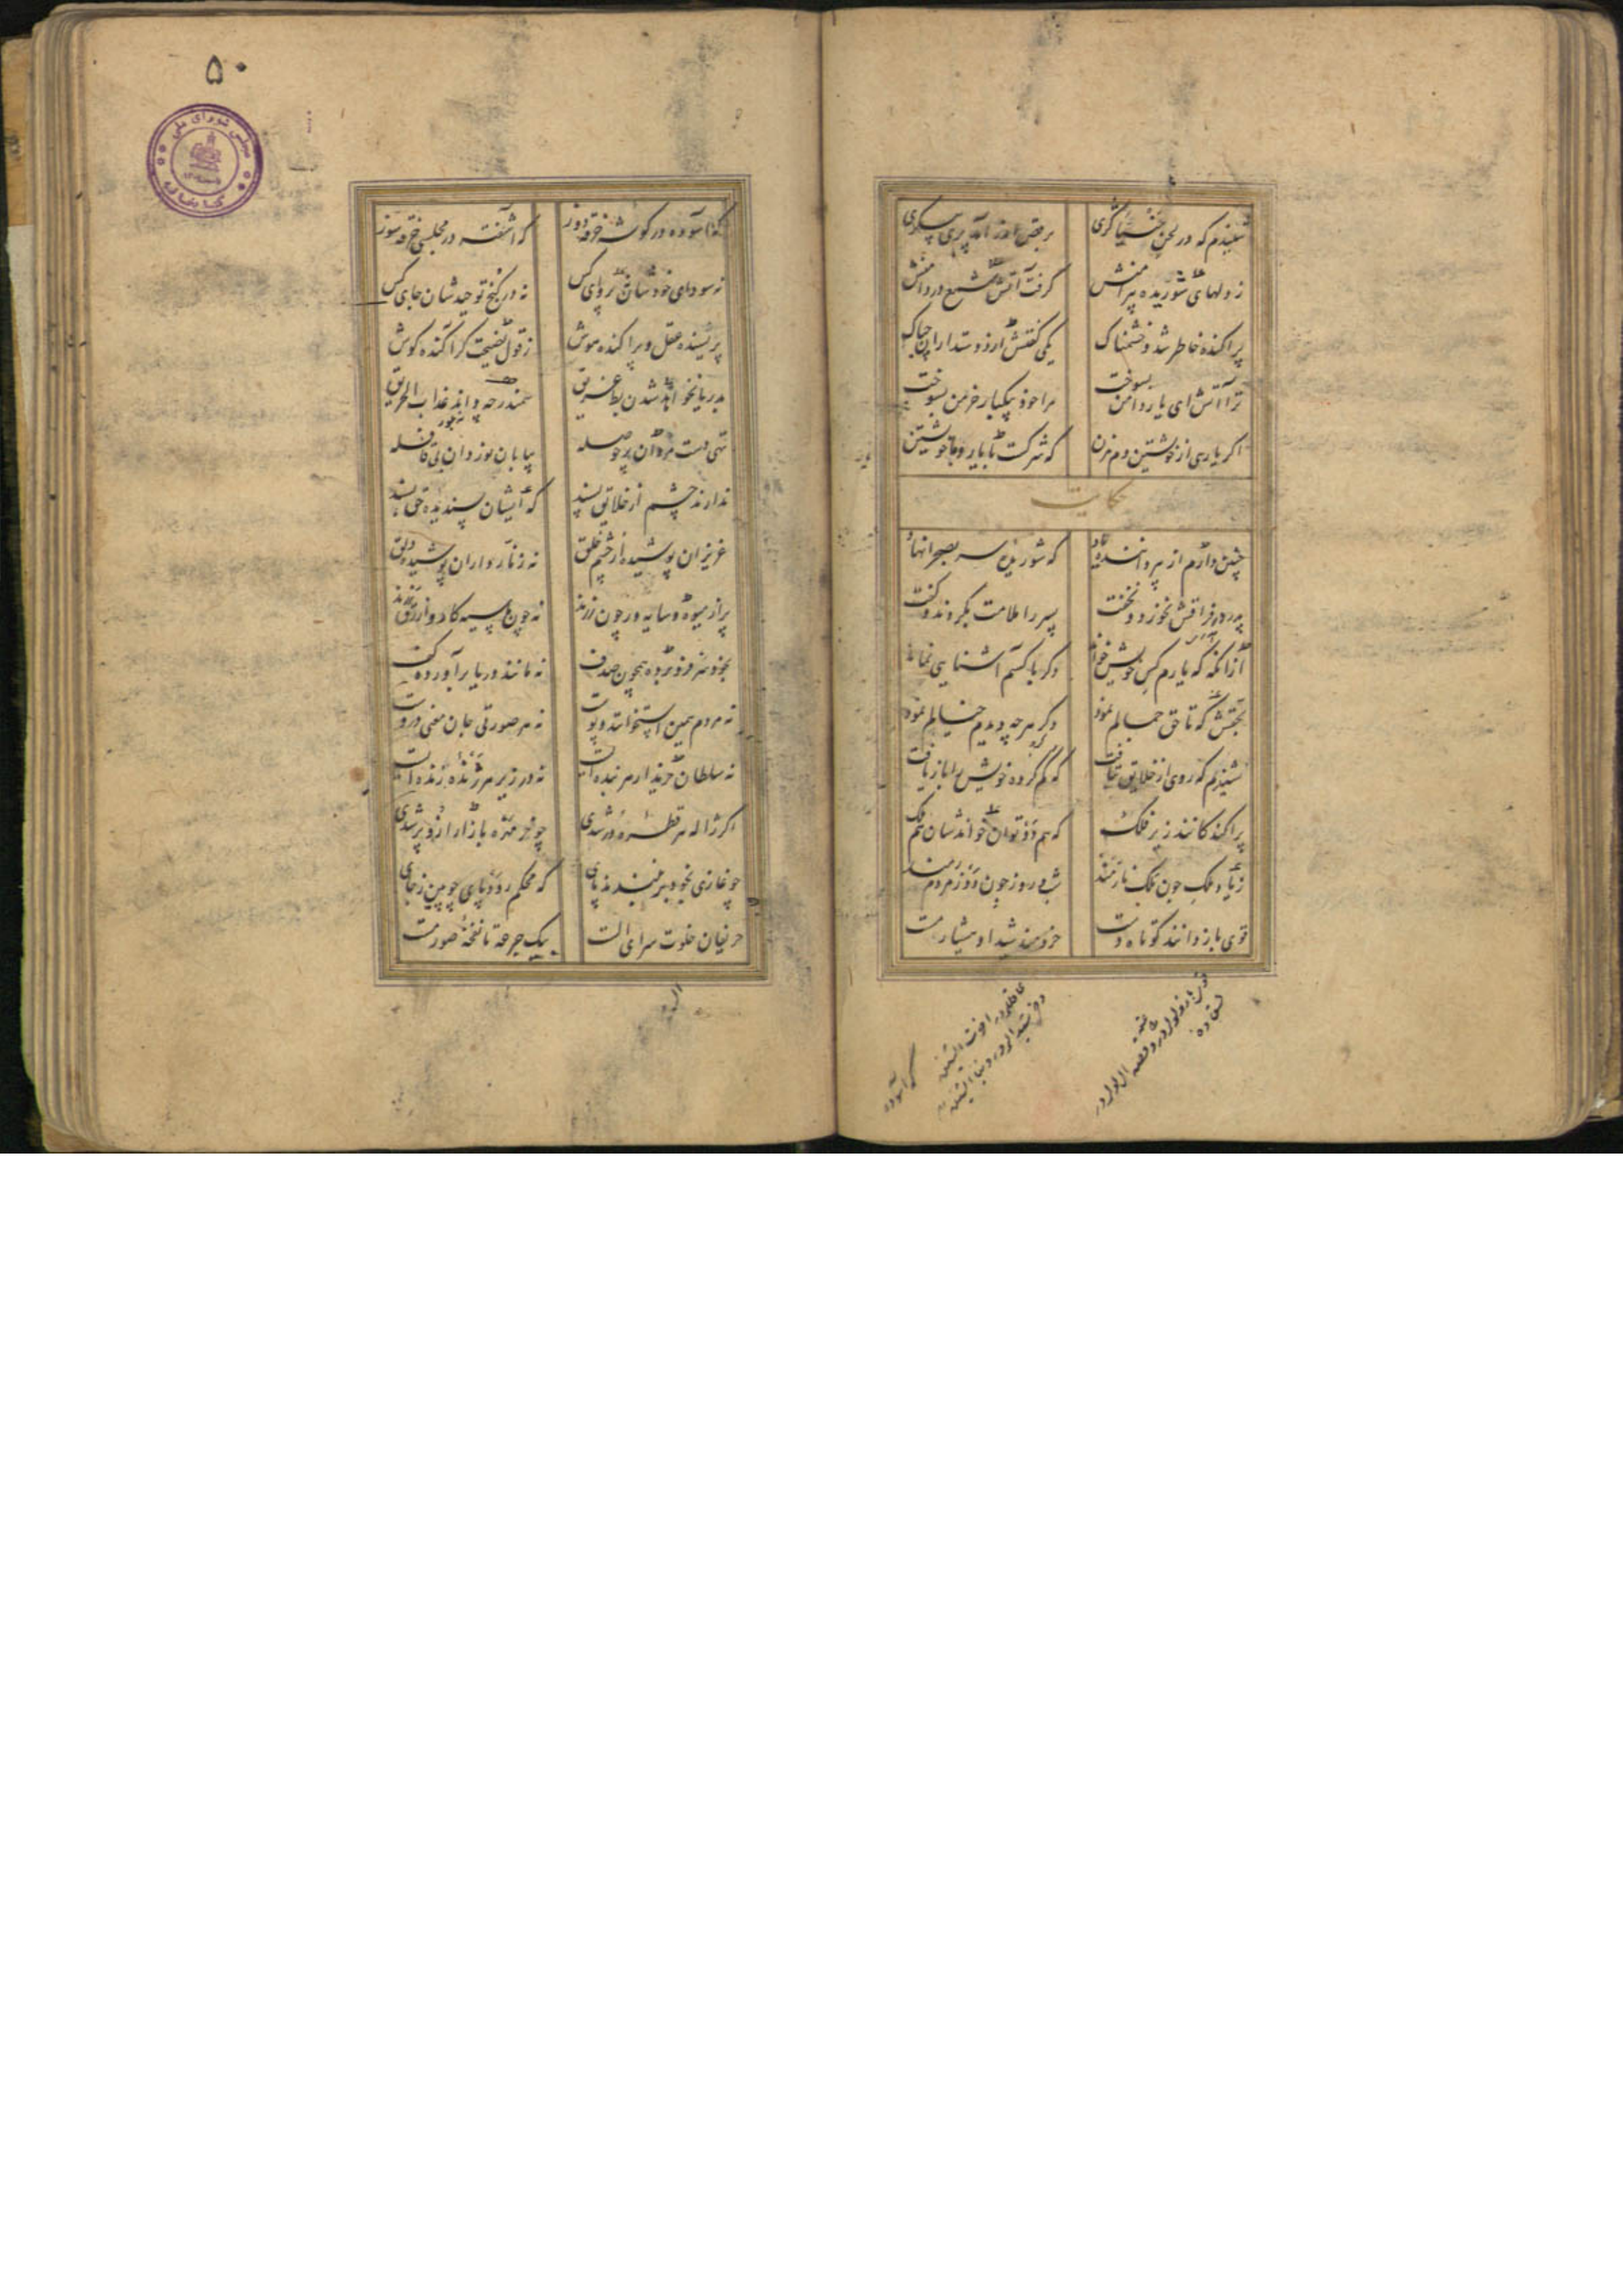 شنیدم که در لحن خنیاگری برقص اندر آمد پری پیکری
ز دلهای شوریده پیرامنش گرفت آتش شمع در دامنش
پراکنده خاطر شد و خشمناک یکی گفتش از دوستداران چه باک
ترا آتش ای یار دامن بسوخت مرا خود بیکبار خرمن بسوخت
اگر یاری از خویشتن دم مزن که شرکت با یار و با خویشتن
حکایت
چنین دارم از پیر داننده یاد که شوریده سر بصحرا نهاد
پدر در فراقش نخورد و نخفت پسر را ملامت بکردند و گفت
از انگه که یارم کس خویش خواند دگر با کسم آشنایی نماند
بحقش که تا حق جمالم نمود دگر هرچه دیدم خیالم نمود
شنیدم که روی از خلایق بتافت که گم کرده خویش را باز یافت
پراکندگانند زیر فلک که هم دد توان خواندشان هم ملک
ز یاد ملک چون ملک نارمند شب و روز چون دد ز مردم رمند
قوی بازوانند کوتاه دست خردمند شیدا و هشیار مست
که آسوده
۵۰
که آسوده در گوشه خرقه دوز که آشفته در مجلسی خرقه سوز
نه سودای خودشان نه پروای کس نه در کنج توحیدشان جای کس
پریشیده عقل و پراکنده هوش ز قول نصیحت گر آکنده گوش
بدریا نخواهد شدن بط غریق سمندر چه داند عذاب الحریق
تهی دست مردان پر حوصله بیابان نوردان بی قافله
ندارند چشم از خلایق پسند که ایشان پسندیده حق بسند
عزیزان پوشیده از چشم خلق نه زنار داران پوشیده دلق
پر از میوه و سایه ور چون رزند نه چون ما سیه کار و ازرق رزند
بخود سر فرو برده همچون صدف نه مانند دریا برآورده کف
نه مردم همین استخوانند و پوست نه هر صورتی جان معنی دروست
نه سلطان خریدار هر بنده ایست نه در زیر هر ژنده زنده ایست
اگر ژاله هر قطره در شدی چو خر مهره بازار ازو پر شدی
چو غازی بخود بر نبندند پای که محکم رود پای چوبین ز جای
حریفان خلوت سرای الست بیک جرعه تا نفخه صور مست